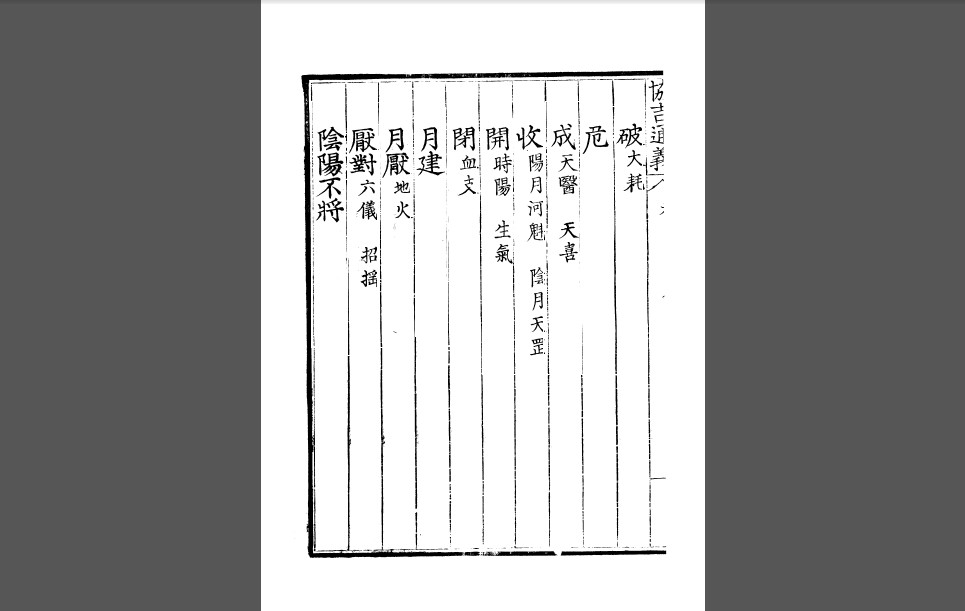 協吉通義
破大耗
危
成天醫　天喜
收陽月河魁　陰月天罡
開時陽　生氣
閉血支
月建
月厭地火
厭對六儀　招搖
陰陽不將